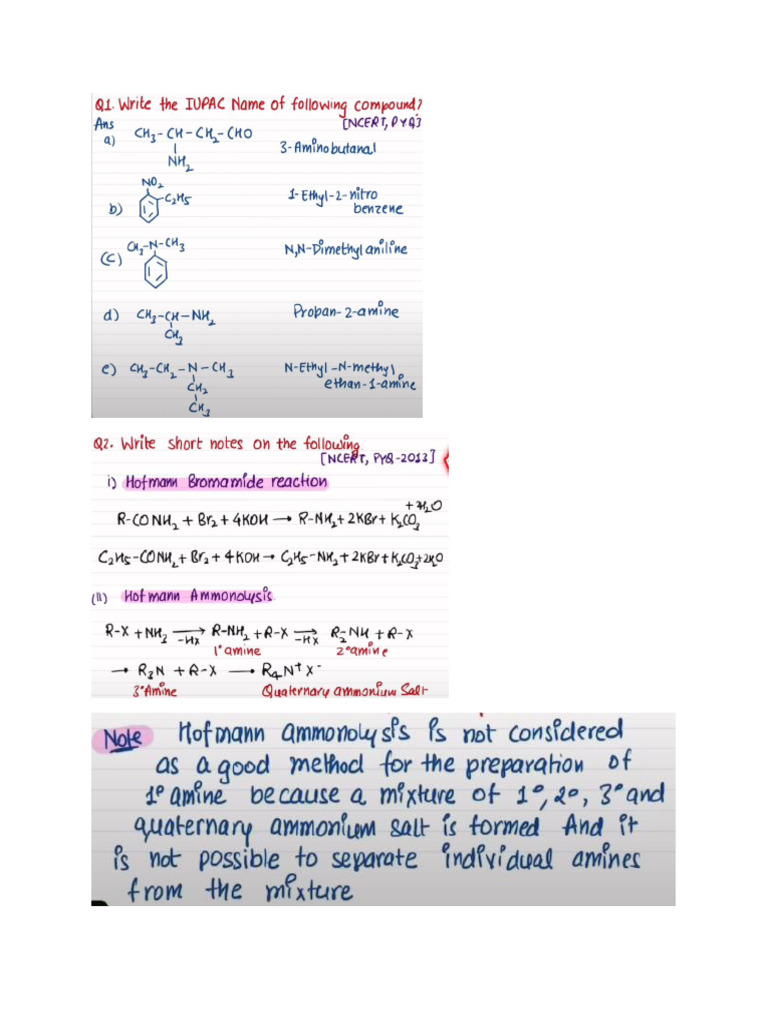 Q1. Write the IUPAC Name of following compound?
Ans [NCERT, PYQ]
a) CH3-CH-CH2-CHO
NH2
3-Aminobutanal
NO2
b) C2H5
1-Ethyl-2-nitro
benzene
(C) CH3-N-CH3
N,N-Dimethylaniline
d) CH3-CH-NH2
CH3
Propan-2-amine
e) CH3-CH2-N-CH3
CH2
CH3
N-Ethyl-N-methyl
ethan-1-amine
Q2. Write short notes on the following
[NCERT, PYQ-2013]
i) Hofmann Bromamide reaction
R-CONH2 + Br2 + 4KOH → R-NH2 + 2KBr + K2CO3 + 2H2O
C2H5-CONH2 + Br2 + 4KOH → C2H5-NH2 + 2KBr + K2CO3 + 2H2O
(ii) Hofmann Ammonolysis
R-X + NH3 → -HX R-NH2 + R-X → -HX R2NH + R-X
1° amine 2° amine
→ R3N + R-X → R4N+X-
3° Amine Quaternary ammonium Salt
Note Hofmann ammonolysis is not considered
as a good method for the preparation of
1° amine because a mixture of 1°, 2°, 3° and
quaternary ammonium salt is formed And it
is not possible to separate individual amines
from the mixture